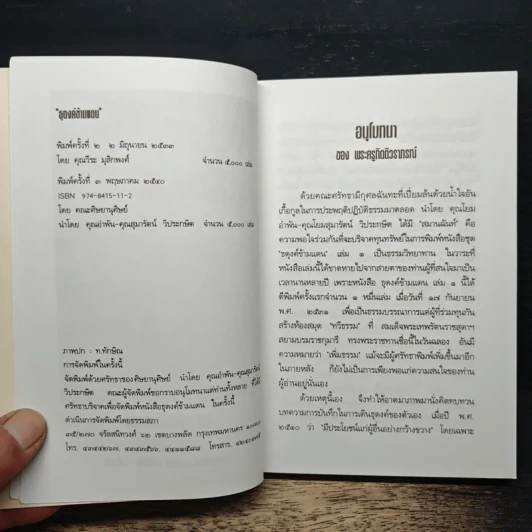 "ธุดงค์ข้ามแดน"
พิมพ์ครั้งที่ ๒ ๒ มิถุนายน ๒๕๓๓
โดย คุณวีระ มุสิกพงศ์ จำนวน ๕,๐๐๐ เล่ม
พิมพ์ครั้งที่ ๓ พฤษภาคม ๒๕๔๐
ISBN 974-8415-11-2
โดย คณะศิษยานุศิษย์
นำโดย คุณอำพัน-คุณสุมารัตน์ วิประกษิต จำนวน ๕,๐๐๐ เล่ม
ภาพปก : ท.ทักษิณ
การจัดพิมพ์ในครั้งนี้
จัดพิมพ์ด้วยศรัทธาของศิษยานุศิษย์ นำโดย คุณอำพัน-คุณสุมารัตน์
วิประกษิต คณะผู้จัดพิมพ์ขอกราบอนุโมทนาแด่ท่านทั้งหลาย ที่ได้มี
ศรัทธาบริจาคเพื่อจัดพิมพ์หนังสือธุดงค์ข้ามแดน ในครั้งนี้
ดำเนินการจัดพิมพ์โดยธรรมสภา
๓๕/๒๗๐ จรัลสนิทวงศ์ ๖๒ เขตบางพลัด กรุงเทพมหานคร ๑๐๗๐๐
โทร. ๔๓๔๔๒๖๗, ๔๓๔๓๕๖๖, ๔๔๑๑๕๘๘ โทรสาร.
อนุโมทนา
ของ พระครูกิตติวราภรณ์
ด้วยคณะศรัทธามีกุศลฉันทะที่เปี่ยมล้นด้วยน้ำใจอัน
เกื้อกูลในการประพฤติปฏิบัติธรรมมาตลอด นำโดย คุณโยม
อำพัน-คุณโยมสุมารัตน์ วิประกษิต ได้มี "สมานฉันท์" คือ
ความพอใจร่วมกันที่จะบริจาคทุนทรัพย์ในการพิมพ์หนังสือชุด
"ธุดงค์ข้ามแดน" เล่ม ๑ เป็นธรรมวิทยาทาน ในวาระที่
หนังสือเล่มนี้ได้ขาดหายไปจากสายตาของท่านผู้ที่สนใจมาเป็น
เวลานานหลายปี เพราะหนังสือ ธุดงค์ข้ามแดน เล่ม ๑ นี้ได้
ตีพิมพ์ครั้งแรกจำนวน ๑ หมื่นเล่ม เมื่อวันที่ ๑๗ กันยายน
พ.ศ. ๒๕๓๑ เพื่อเป็นธรรมบรรณาการแด่ผู้ที่ร่วมทุนกัน
สร้างห้องสมุด "ทวีธรรม" ที่ สมเด็จพระเทพรัตนราชสุดาฯ
สยามบรมราชกุมารี ทรงพระราชทานชื่อนี้ในวันฉลอง อันมี
ความหมายว่า "เพิ่มธรรม" แม้จะมีผู้ศรัทธาพิมพ์เพิ่มขึ้นมาอีก
ในภายหลัง ก็ยังไม่เป็นการเพียงพอแก่ความสนใจของท่าน
ผู้อ่านอยู่นั่นเอง
ด้วยเหตุนี้เอง จึงทำให้อาตมาภาพมานั่งคิดทบทวน
บทความการบันทึกในการเดินธุดงค์ของตัวเอง เมื่อปี พ.ศ.
๒๕๑๐ ว่า "มีประโยชน์แก่ผู้อื่นอย่างกว้างขวาง" โดยเฉพาะ